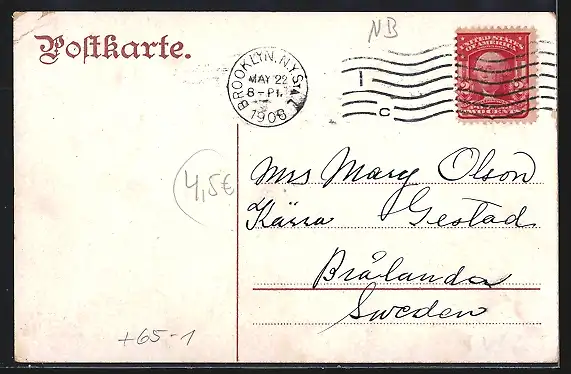 NB
Postkarte.
BROOKLYN, N.Y. STA. L
MAY 22
8-PM
1908
1
C
UNITED STATES
OF AMERICA
2 2
TWO CENTS
4,5€
Mrs Mary Olson
Kärra Gestad
Brålanda
Sweden
+65-1